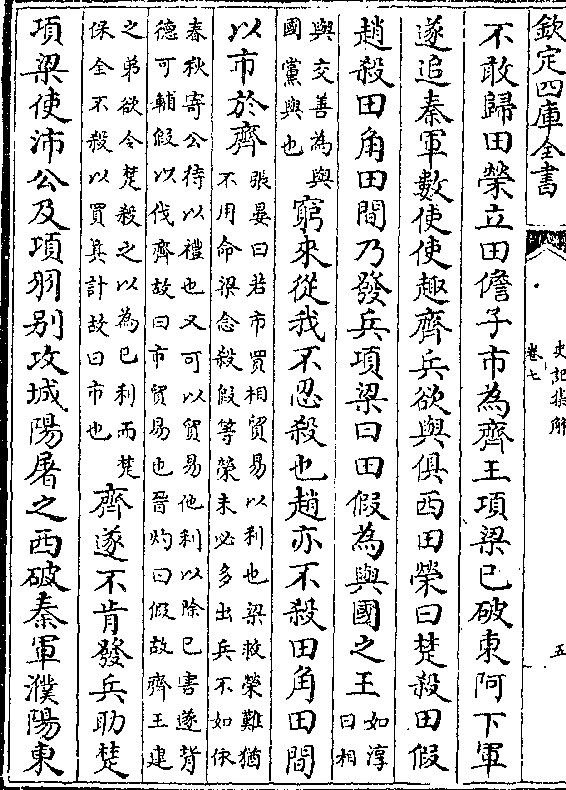 欽定四庫全書
史記集解
卷七
五
不敢歸田榮立田儋子市為齊王項梁已破東阿下軍
遂追秦軍數使使趣齊兵欲與俱西田榮曰楚殺田假
趙殺田角田間乃發兵項梁曰田假為與國之王
如淳
曰相
與交善為與
國黨與也
窮來從我不忍殺也趙亦不殺田角田間
以市於齊
張晏曰若市買相貿易以利也梁救榮難猶
不用命梁念殺假等榮未必多出兵不如依
春秋寄公待以禮也又可以貿易他利以除已害遂背
德可輔假以伐齊故曰市貿易也晉灼曰假故齊王建
之弟欲令楚殺之以為已利而楚
保全不殺以買其計故曰市也
齊遂不肯發兵助楚
項梁使沛公及項羽别攻城陽屠之西破秦軍濮陽東